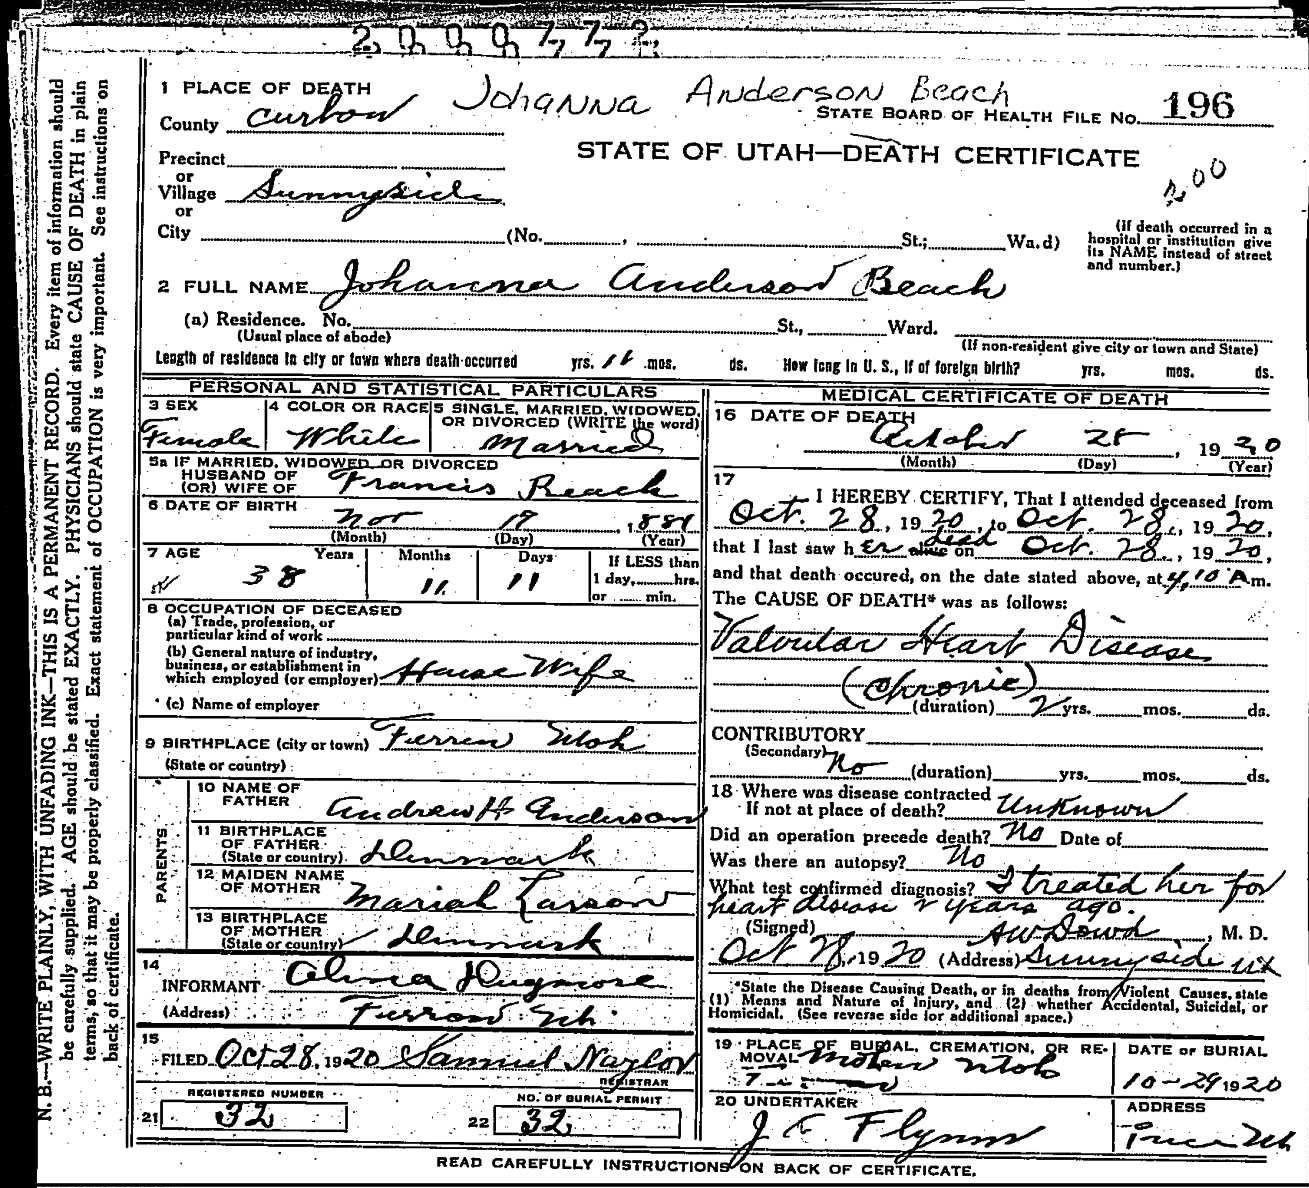 2000772
1 PLACE OF DEATH Johanna Anderson Beach
County Carbon STATE BOARD OF HEALTH FILE NO. 196
STATE OF UTAH—DEATH CERTIFICATE
Precinct
or
Village Sunnyside
or
City (No. , St.; Wa.d) (If death occurred in a hospital or institution give its NAME instead of street and number.)
2 FULL NAME Johanna Anderson Beach
(a) Residence. No. St., Ward.
(Usual place of abode) (If non-resident give city or town and State)
Length of residence in city or town where death occurred yrs. mos. ds. How long in U. S., if of foreign birth? yrs. mos. ds.
PERSONAL AND STATISTICAL PARTICULARS
3 SEX Female
4 COLOR OR RACE White
5 SINGLE, MARRIED, WIDOWED, OR DIVORCED (WRITE the word) Married
5a IF MARRIED, WIDOWED, OR DIVORCED
HUSBAND OF
(OR) WIFE OF Francis Beach
6 DATE OF BIRTH Nov 17, 1881
(Month) (Day) (Year)
7 AGE Years Months Days If LESS than
38 11 11 1 day, hrs.
or min.
8 OCCUPATION OF DECEASED
(a) Trade, profession, or
particular kind of work
(b) General nature of industry,
business, or establishment in
which employed (or employer) House Wife
(c) Name of employer
9 BIRTHPLACE (city or town) Ferron Utah
(State or country)
PARENTS
10 NAME OF
FATHER Andrew H Anderson
11 BIRTHPLACE
OF FATHER
(State or country) Denmark
12 MAIDEN NAME
OF MOTHER Mariah Larson
13 BIRTHPLACE
OF MOTHER
(State or country) Denmark
14
INFORMANT
(Address) Ferron Ut.
15
FILED Oct 28, 1920 Samuel Naylor
REGISTRAR
REGISTERED NUMBER NO. OF BURIAL PERMIT
21 32 22 32
MEDICAL CERTIFICATE OF DEATH
16 DATE OF DEATH
October 28, 1920
(Month) (Day) (Year)
17
I HEREBY CERTIFY, That I attended deceased from
Oct. 28, 1920, to Oct. 28, 1920,
that I last saw her alive dead on Oct. 28, 1920,
and that death occured, on the date stated above, at 4,10 A m.
The CAUSE OF DEATH* was as follows:
Valvular Heart Disease
(Chronic)
(duration) 2 yrs. mos. ds.
CONTRIBUTORY
(Secondary)
No (duration) yrs. mos. ds.
18 Where was disease contracted
If not at place of death? Unknown
Did an operation precede death? No Date of
Was there an autopsy? No
What test confirmed diagnosis? I treated her for
heart disease 2 years ago.
(Signed) A W Dowd, M. D.
Oct 28, 1920 (Address) Sunnyside Ut
*State the Disease Causing Death, or in deaths from Violent Causes, state
(1) Means and Nature of Injury, and (2) whether Accidental, Suicidal, or
Homicidal. (See reverse side for additional space.)
19 PLACE OF BURIAL, CREMATION, OR REMOVAL Molen Utah
DATE OF BURIAL
10-29 1920
20 UNDERTAKER
J E Flynn
ADDRESS
Price Ut
READ CAREFULLY INSTRUCTIONS ON BACK OF CERTIFICATE.
N. B.—WRITE PLAINLY, WITH UNFADING INK—THIS IS A PERMANENT RECORD. Every item of information should
be carefully supplied. AGE should be stated EXACTLY. PHYSICIANS should state CAUSE OF DEATH in plain
terms, so that it may be properly classified. Exact statement of OCCUPATION is very important. See instructions on
back of certificate.